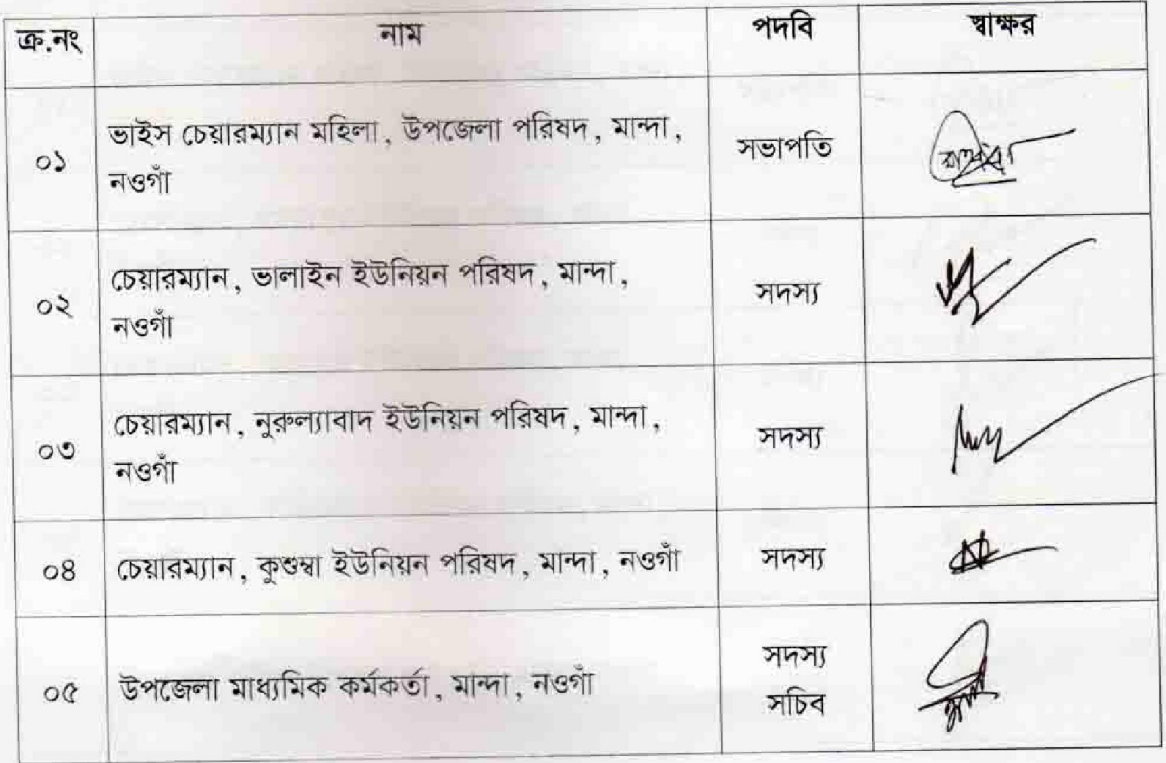 ক্র.নং নাম পদবি স্বাক্ষর
০১ ভাইস চেয়ারম্যান মহিলা, উপজেলা পরিষদ, মান্দা, সভাপতি
নওগাঁ
০২ চেয়ারম্যান, ভালাইন ইউনিয়ন পরিষদ, মান্দা, সদস্য
নওগাঁ
০৩ চেয়ারম্যান, নুরুল্যাবাদ ইউনিয়ন পরিষদ, মান্দা, সদস্য
নওগাঁ
০৪ চেয়ারম্যান, কুশুম্বা ইউনিয়ন পরিষদ, মান্দা, নওগাঁ সদস্য
০৫ উপজেলা মাধ্যমিক কর্মকর্তা, মান্দা, নওগাঁ সদস্য
সচিব